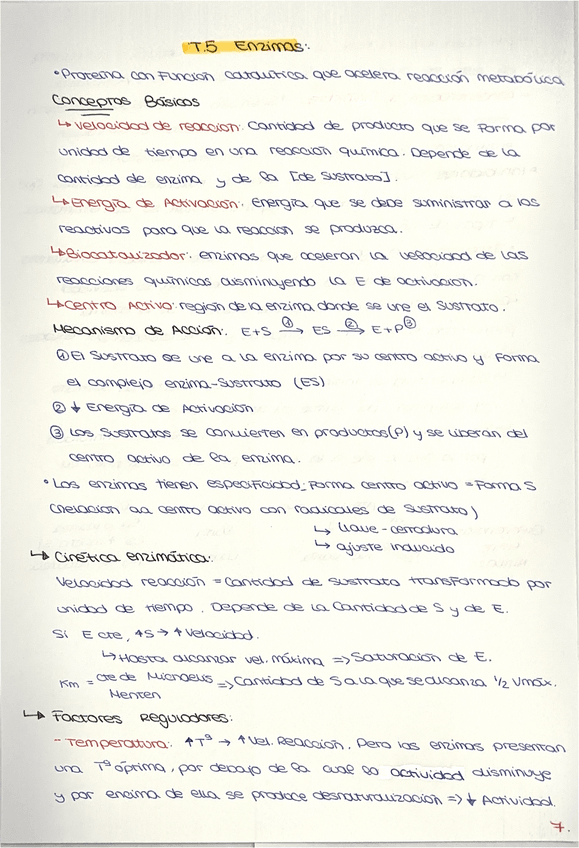 T.5 Enzimas:
• Proteína con Función catalítica que acelera reacción metabólica
Conceptos Básicos
↳ Velocidad de reacción: Cantidad de producto que se Forma por
unidad de tiempo en una reacción química. Depende de la
cantidad de enzima y de la [de Sustrato].
↳ Energía de Activación: Energía que se debe suministrar a los
reactivos para que la reacción se produzca.
↳ Biocatalizador: enzimas que aceleran la velocidad de las
reacciones químicas disminuyendo la E de activación.
↳ Centro Activo: región de la enzima donde se une el Sustrato.
Mecanismo de Acción: E+S →① ES →② E+P③
① El Sustrato se une a la enzima por su centro activo y Forma
el complejo enzima-Sustrato (ES)
② ↓ Energía de Activación
③ Los Sustratos se convierten en productos(P) y se liberan del
centro activo de la enzima.
• Las enzimas tienen especificidad: Forma centro activo = Forma S
(relación aa centro activo con radicales de Sustrato)
↳ llave-cerradura
↳ ajuste inducido
↳ Cinética enzimática:
Velocidad reacción = Cantidad de sustrato transformado por
unidad de tiempo. Depende de la Cantidad de S y de E.
Si E cte, ↑S → ↑ Velocidad.
↳ Hasta alcanzar vel. máxima => Saturación de E.
Km = cte de Michaelis Menten => Cantidad de S a la que se alcanza 1/2 Vmáx.
↳ Factores Reguladores:
- Temperatura: ↑Tª → ↑ Vel. Reacción. Pero las enzimas presentan
una Tª óptima, por debajo de la cual la actividad disminuye
y por encima de ella se produce desnaturalización => ↓ Actividad.
7.